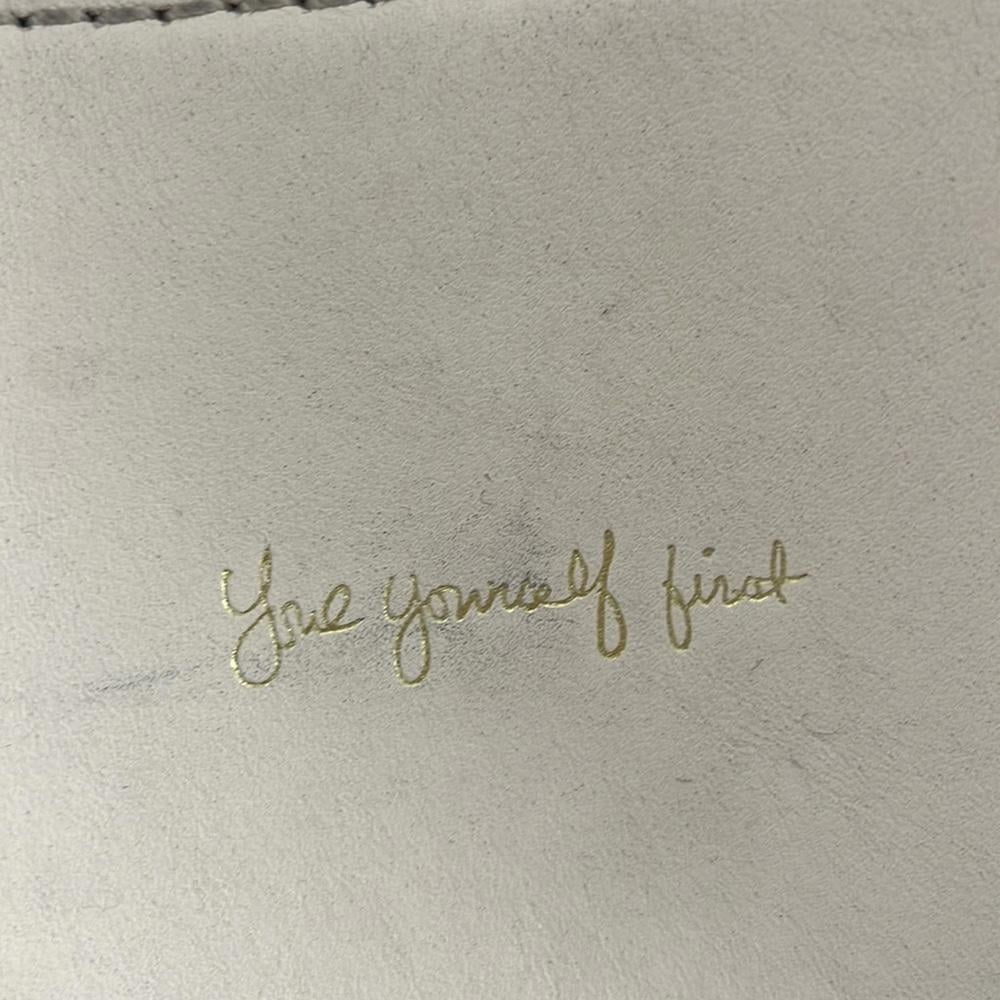 Love yourself first